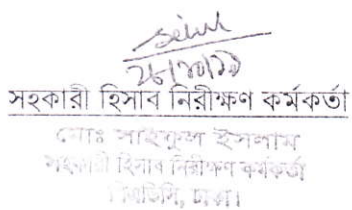 ২৮/১০/১৯
সহকারী হিসাব নিরীক্ষণ কর্মকর্তা
মোঃ সাইফুল ইসলাম
সহকারী হিসাব নিরীক্ষণ কর্মকর্তা
বিএডিসি, ঢাকা।